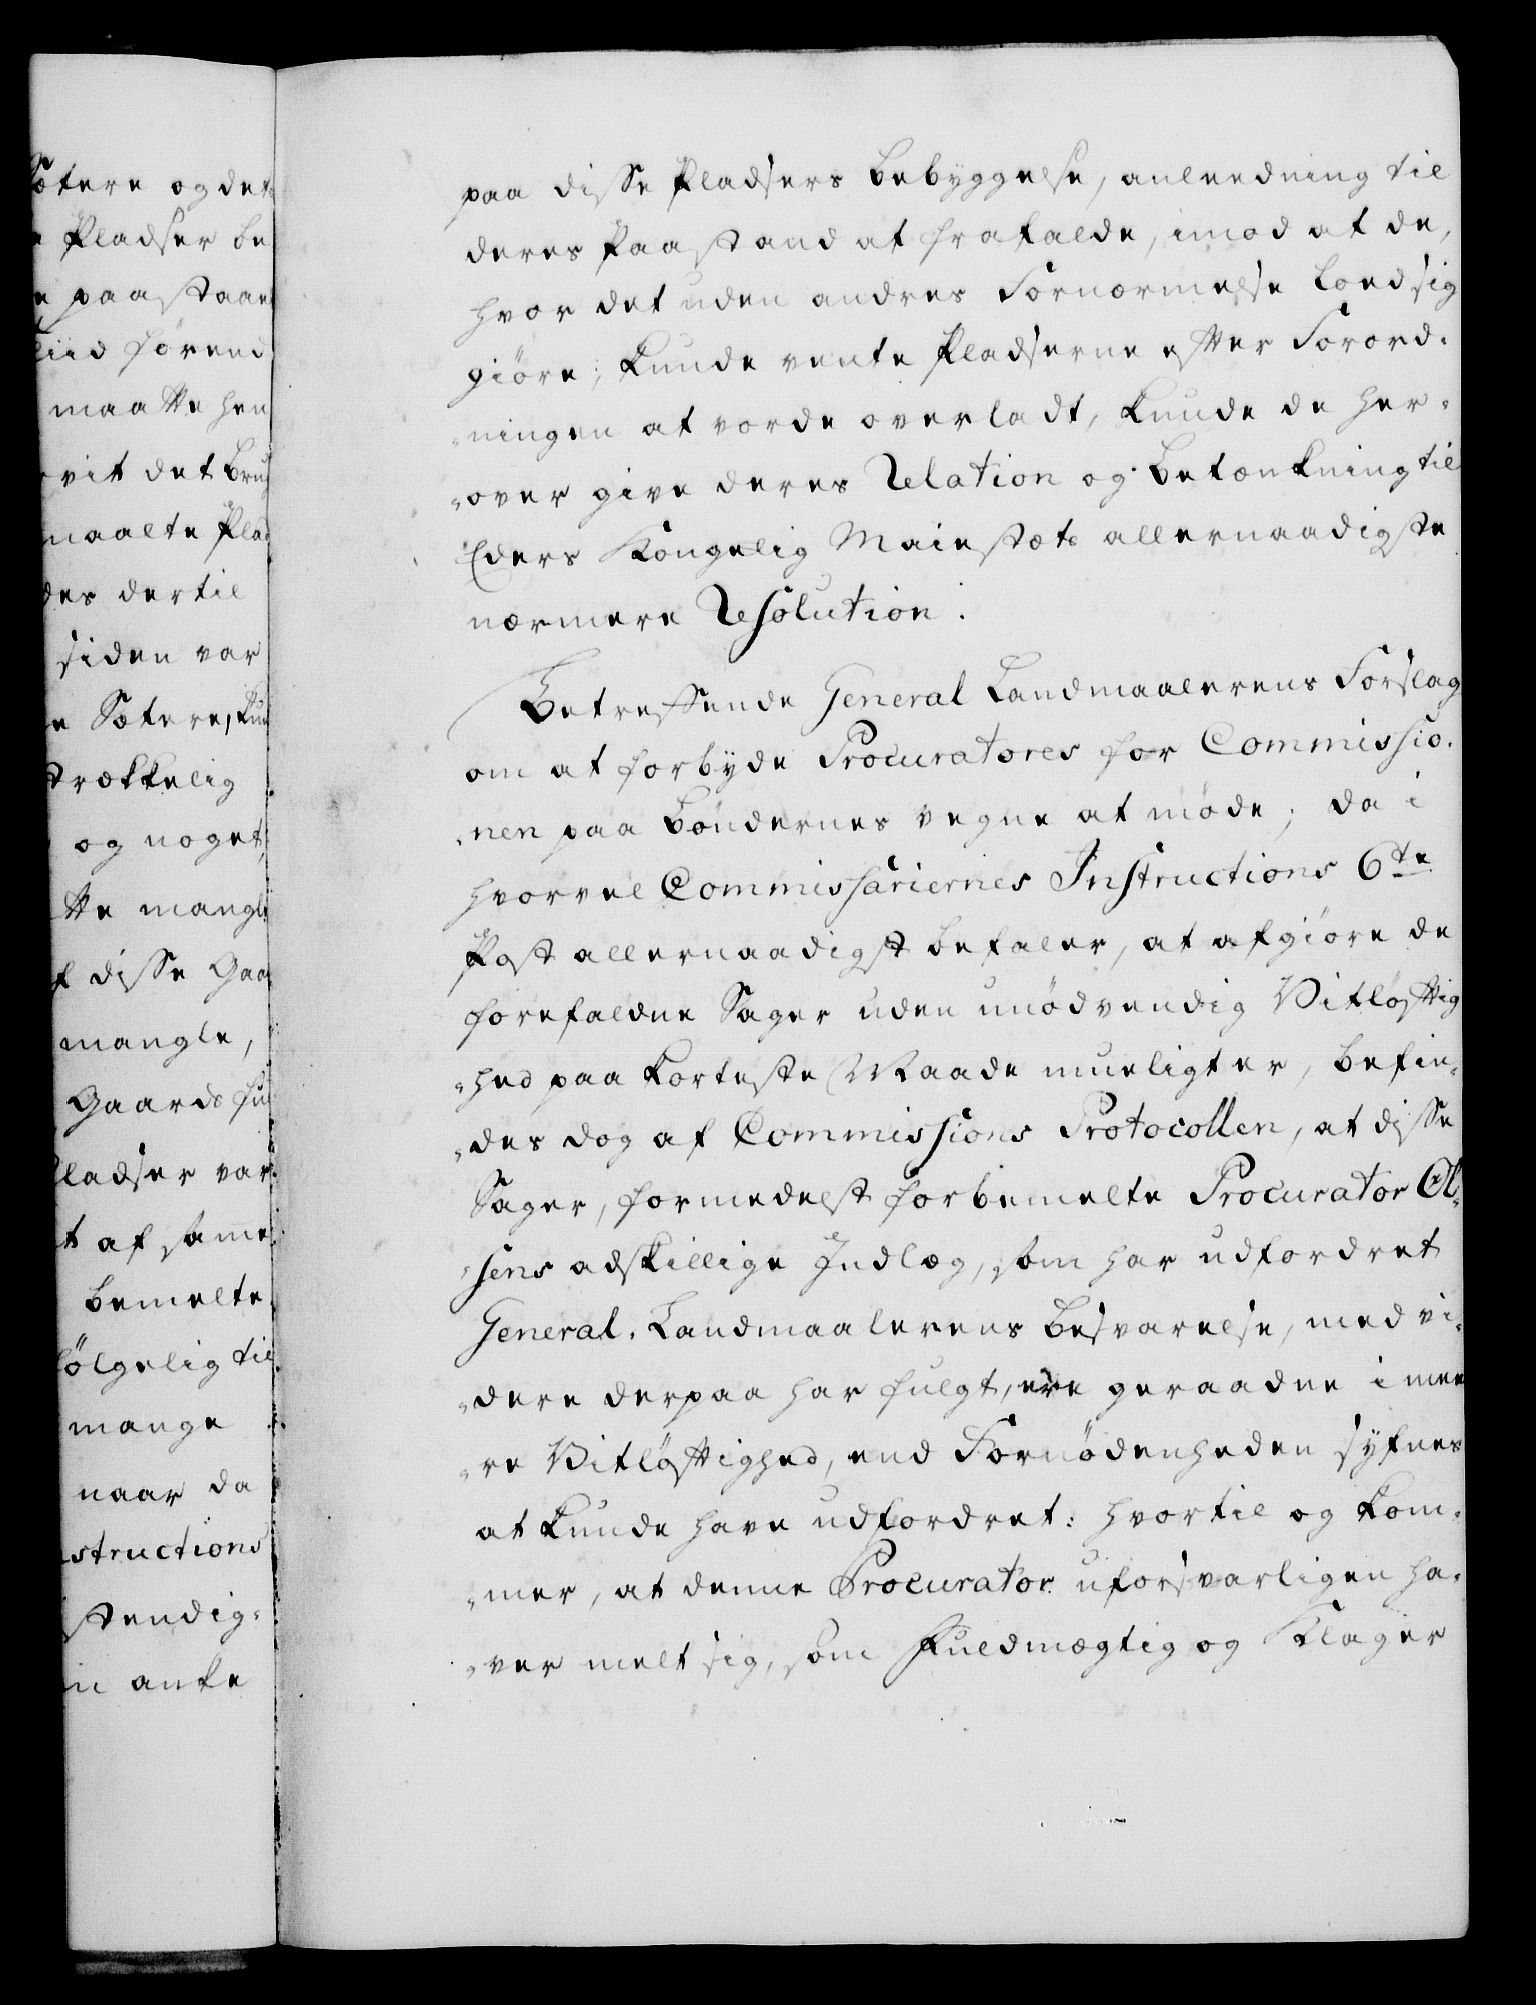 Sætere og det
Pladser be
paastaae
tiid hørend
maatte hen
vit det brug
maalte Plad
des dertil
siden var
e Sætere, kun
strækkelig
og noget
tte mangle
f disse Gaa
mangle,
Gaards fu
Pladser var
t af samme
bemelte
følgelig til
mange
naar da
structions
stendig-
n anke
paa disse Pladsers bebyggelse, anleedning til
deres Paastand at frafalde, imod at de,
hvor det uden andres Fornærmelse loed sig
giøre, kunde vente Pladserne efter Forord-
-ningen at vorde overladt, kunde de her-
-over give deres Relation og betænkning til
Eders Kongelig Maiestæts allernaadigste
nærmere Resolution.
Betreffende General Landmaalerens Forslag
om at forbyde Procuratores for Commissio-
-nen paa bøndernes vegne at møde; da i
hvorvel Commissariernes Instructions 6te
Post allernaadigst befaler, at afgiøre de
forefaldne Sager uden unødvendig Vitløftig
-hed paa korteste Maade mueligt er, befin-
-des dog af Commissions Protocollen, at disse
Sager, formedelst forbemelte Procurator Ol-
-sens adskillige Indlæg, som har udfordret
General-Landmaalerens besvarelse, med vi-
-dere derpaa har fulgt, ere geraadne i mee
-re Vitløftighed, end Fornødenheden syfnes
at kunde have udfordret: hvortil og kom-
-mer, at denne Procurator uforsvarligen ha-
-ver melt sig, som Fuldmægtig og Klager